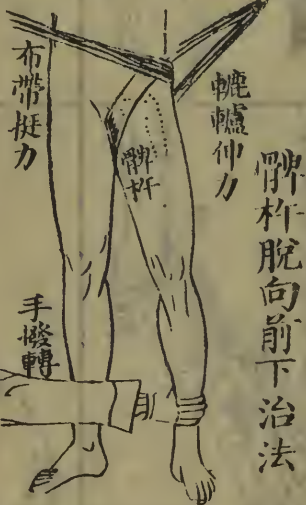 髀杵脫向前下治法
轆轤伸力
髀杵
布帶挺力
手撥轉